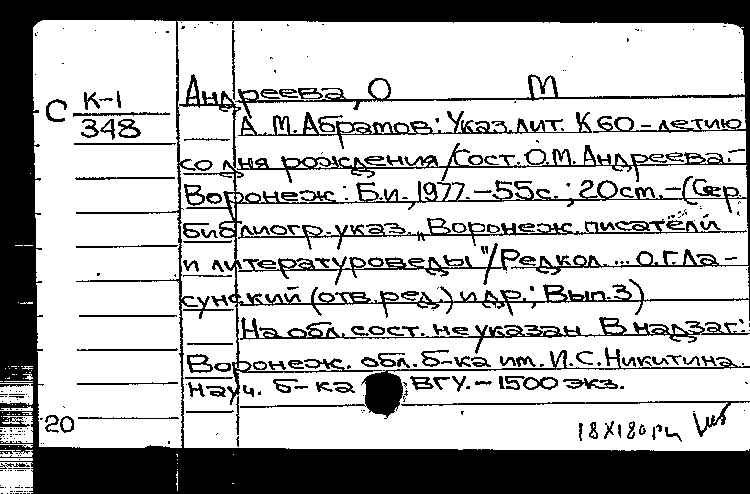 Андреева, О М
С К-1
348
А. М. Абрамов: Указ. лит. К 60-летию
со дня рождения/Сост. О.М. Андреева.-
Воронеж: Б.и., 1977.-55с.; 20 cm.-(Сер.
библиогр. указ. „Воронеж. писатели
и литературоведы"/Редкол. ... О.Г. Ла-
сунский (отв. ред.) и др.; Вып. 3)
На обл. сост. не указан. В надзаг.:
Воронеж. обл. б-ка им. И.С. Никитина.
Науч. б-ка ВГУ.-1500 экз.
20
18X180рц